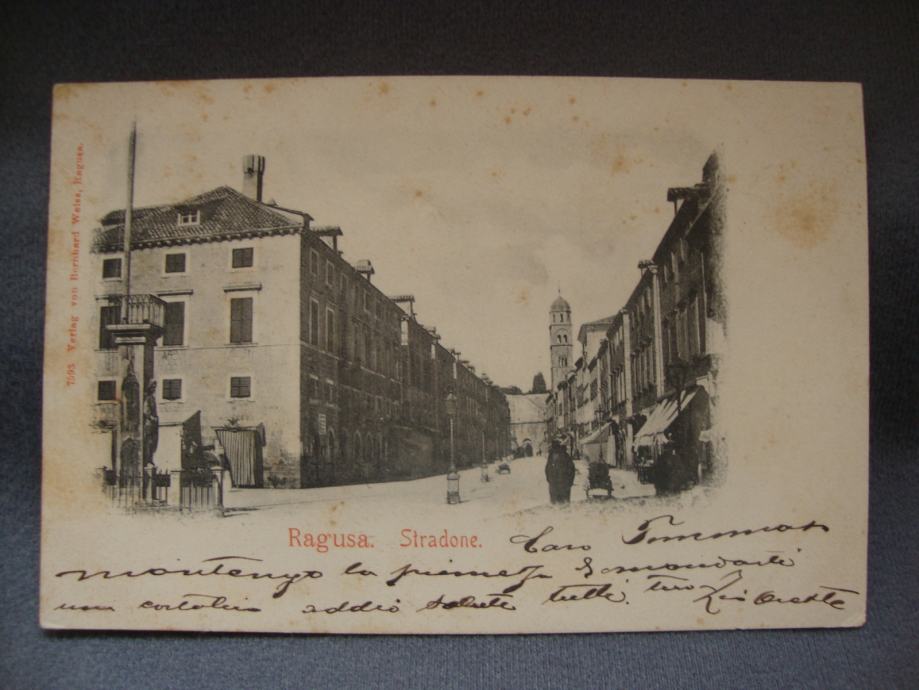 7595 Verlag von Bernhard Weiss, Ragusa.
Ragusa. Stradone.
Caro Tommaso
mantengo la promessa di mandarti
una cartolina addio saluti tutti. tuo Zio Oreste